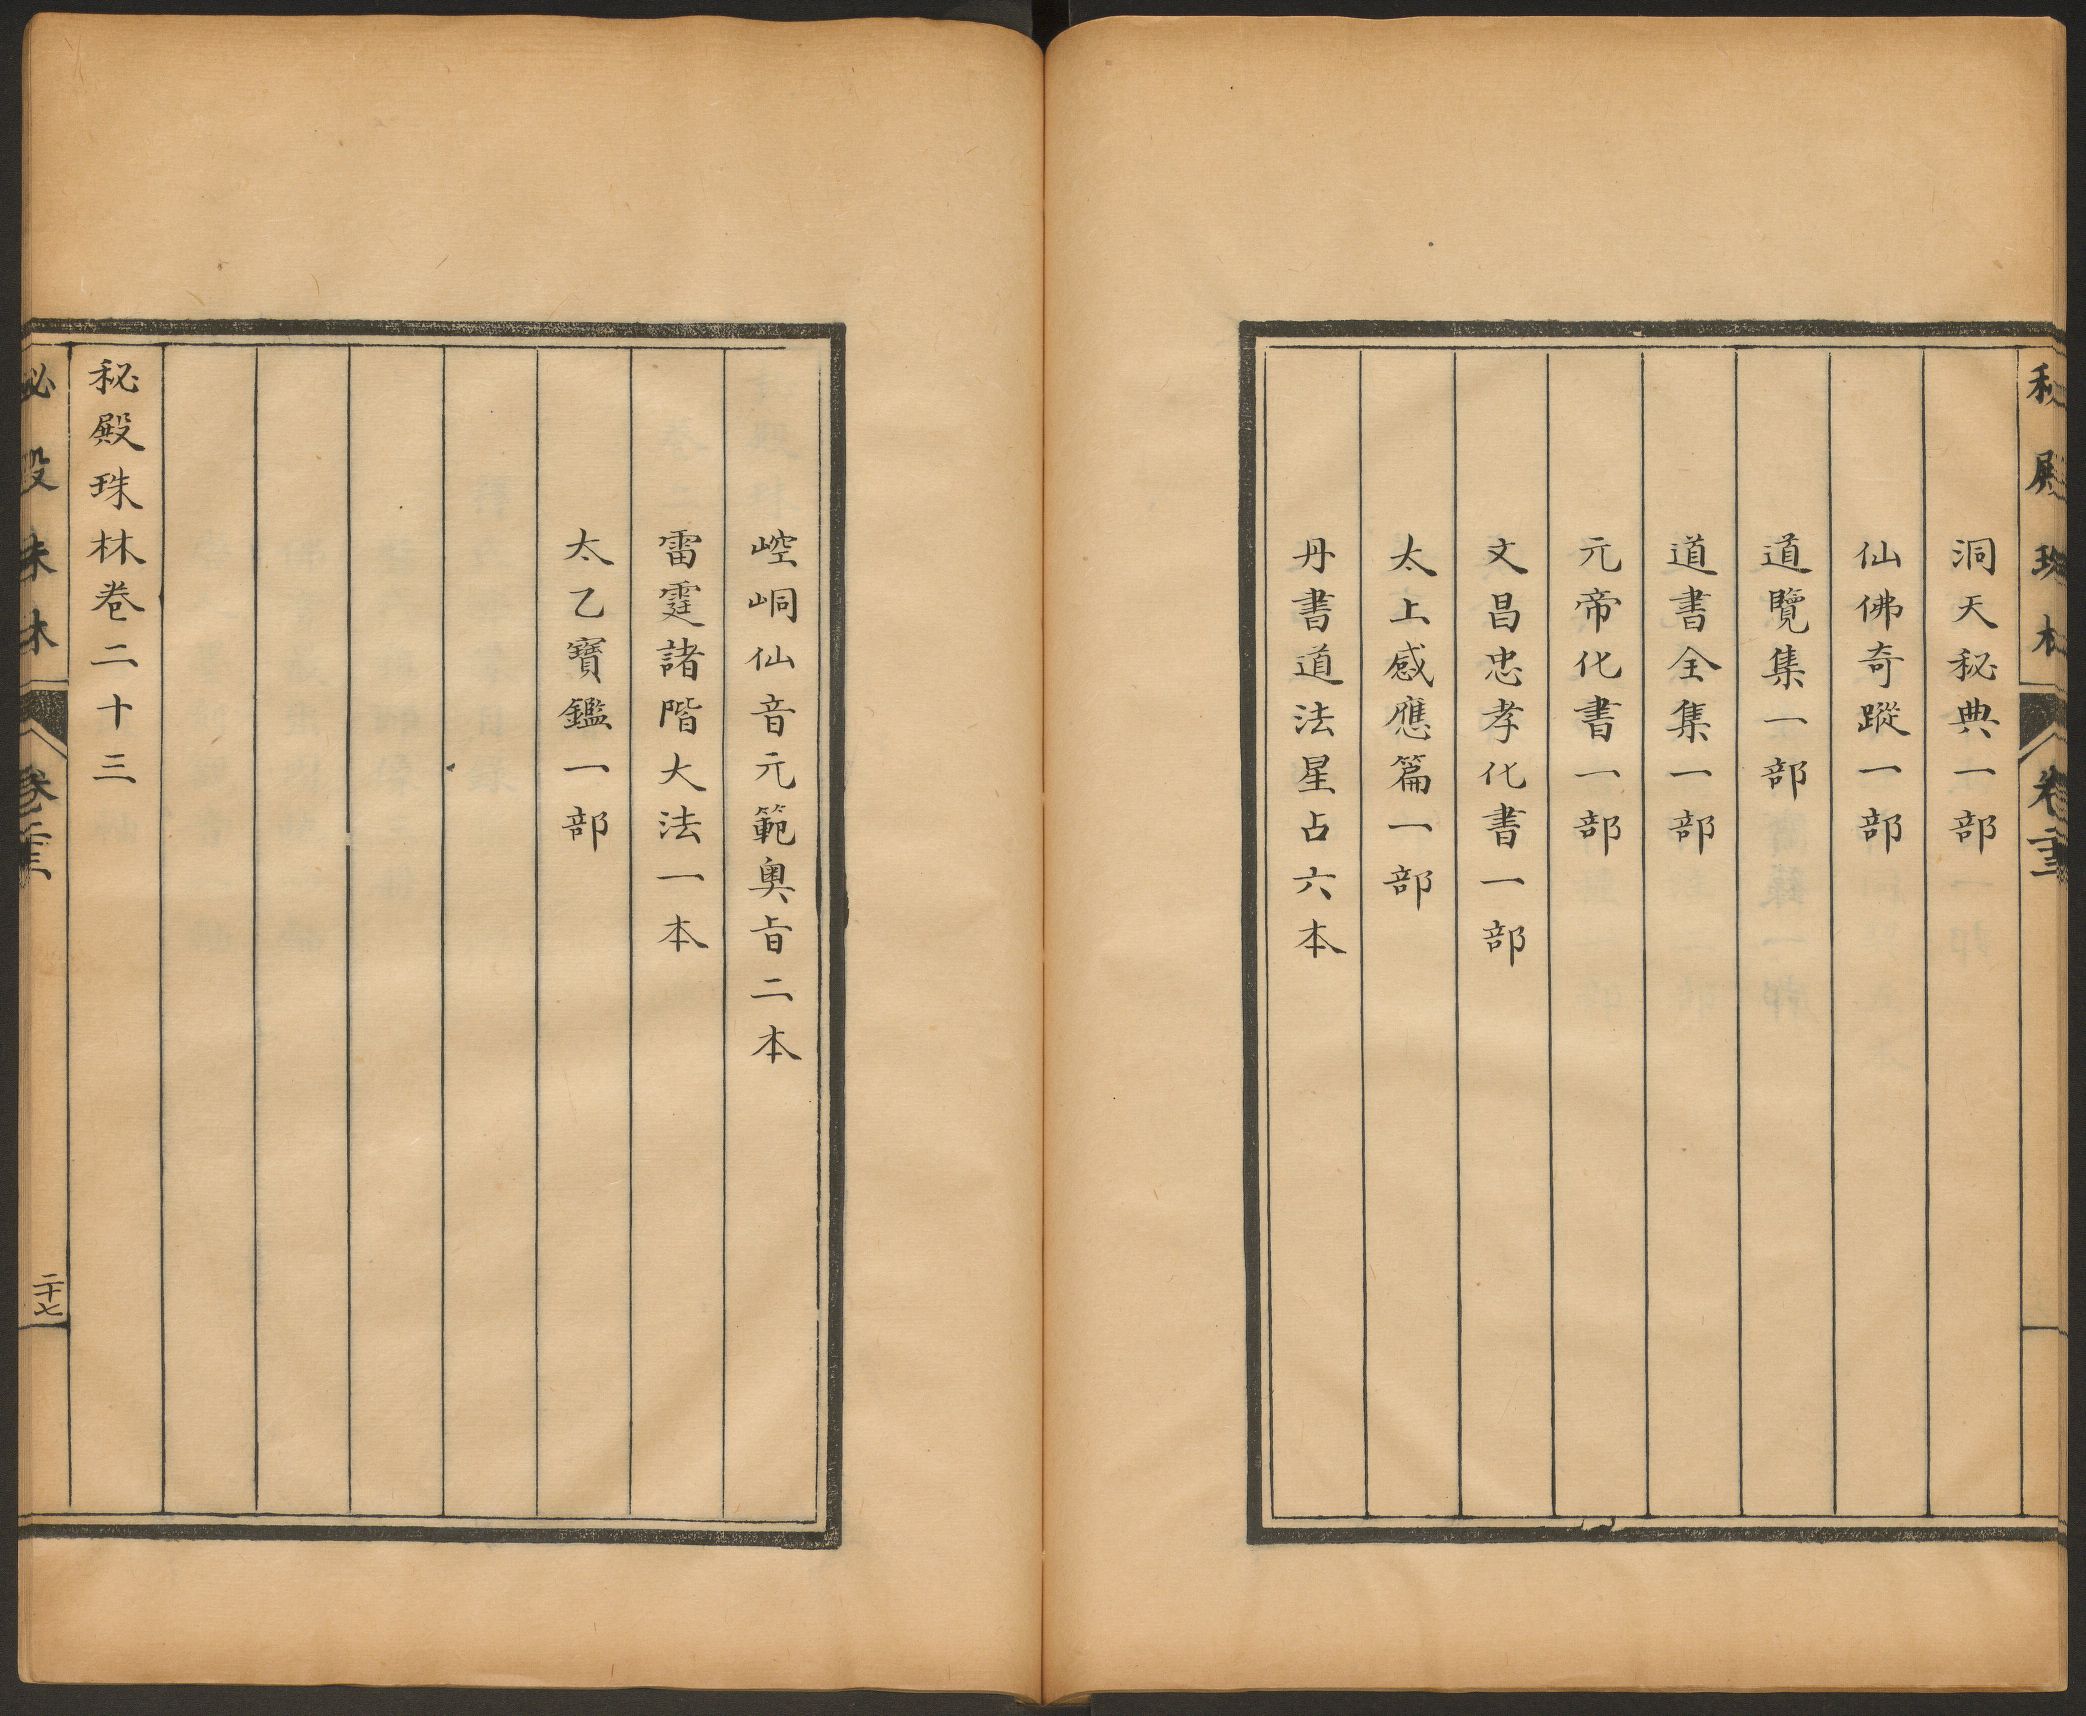 秘殿珠林
卷二十三
洞天秘典一部
仙佛奇蹤一部
道覽集一部
道書全集一部
元帝化書一部
文昌忠孝化書一部
太上感應篇一部
丹書道法星占六本
崆峒仙音元範奧旨二本
雷霆諸階大法一本
太乙寶鑑一部
秘殿珠林卷二十三
秘殿珠林
卷二十三
二十七